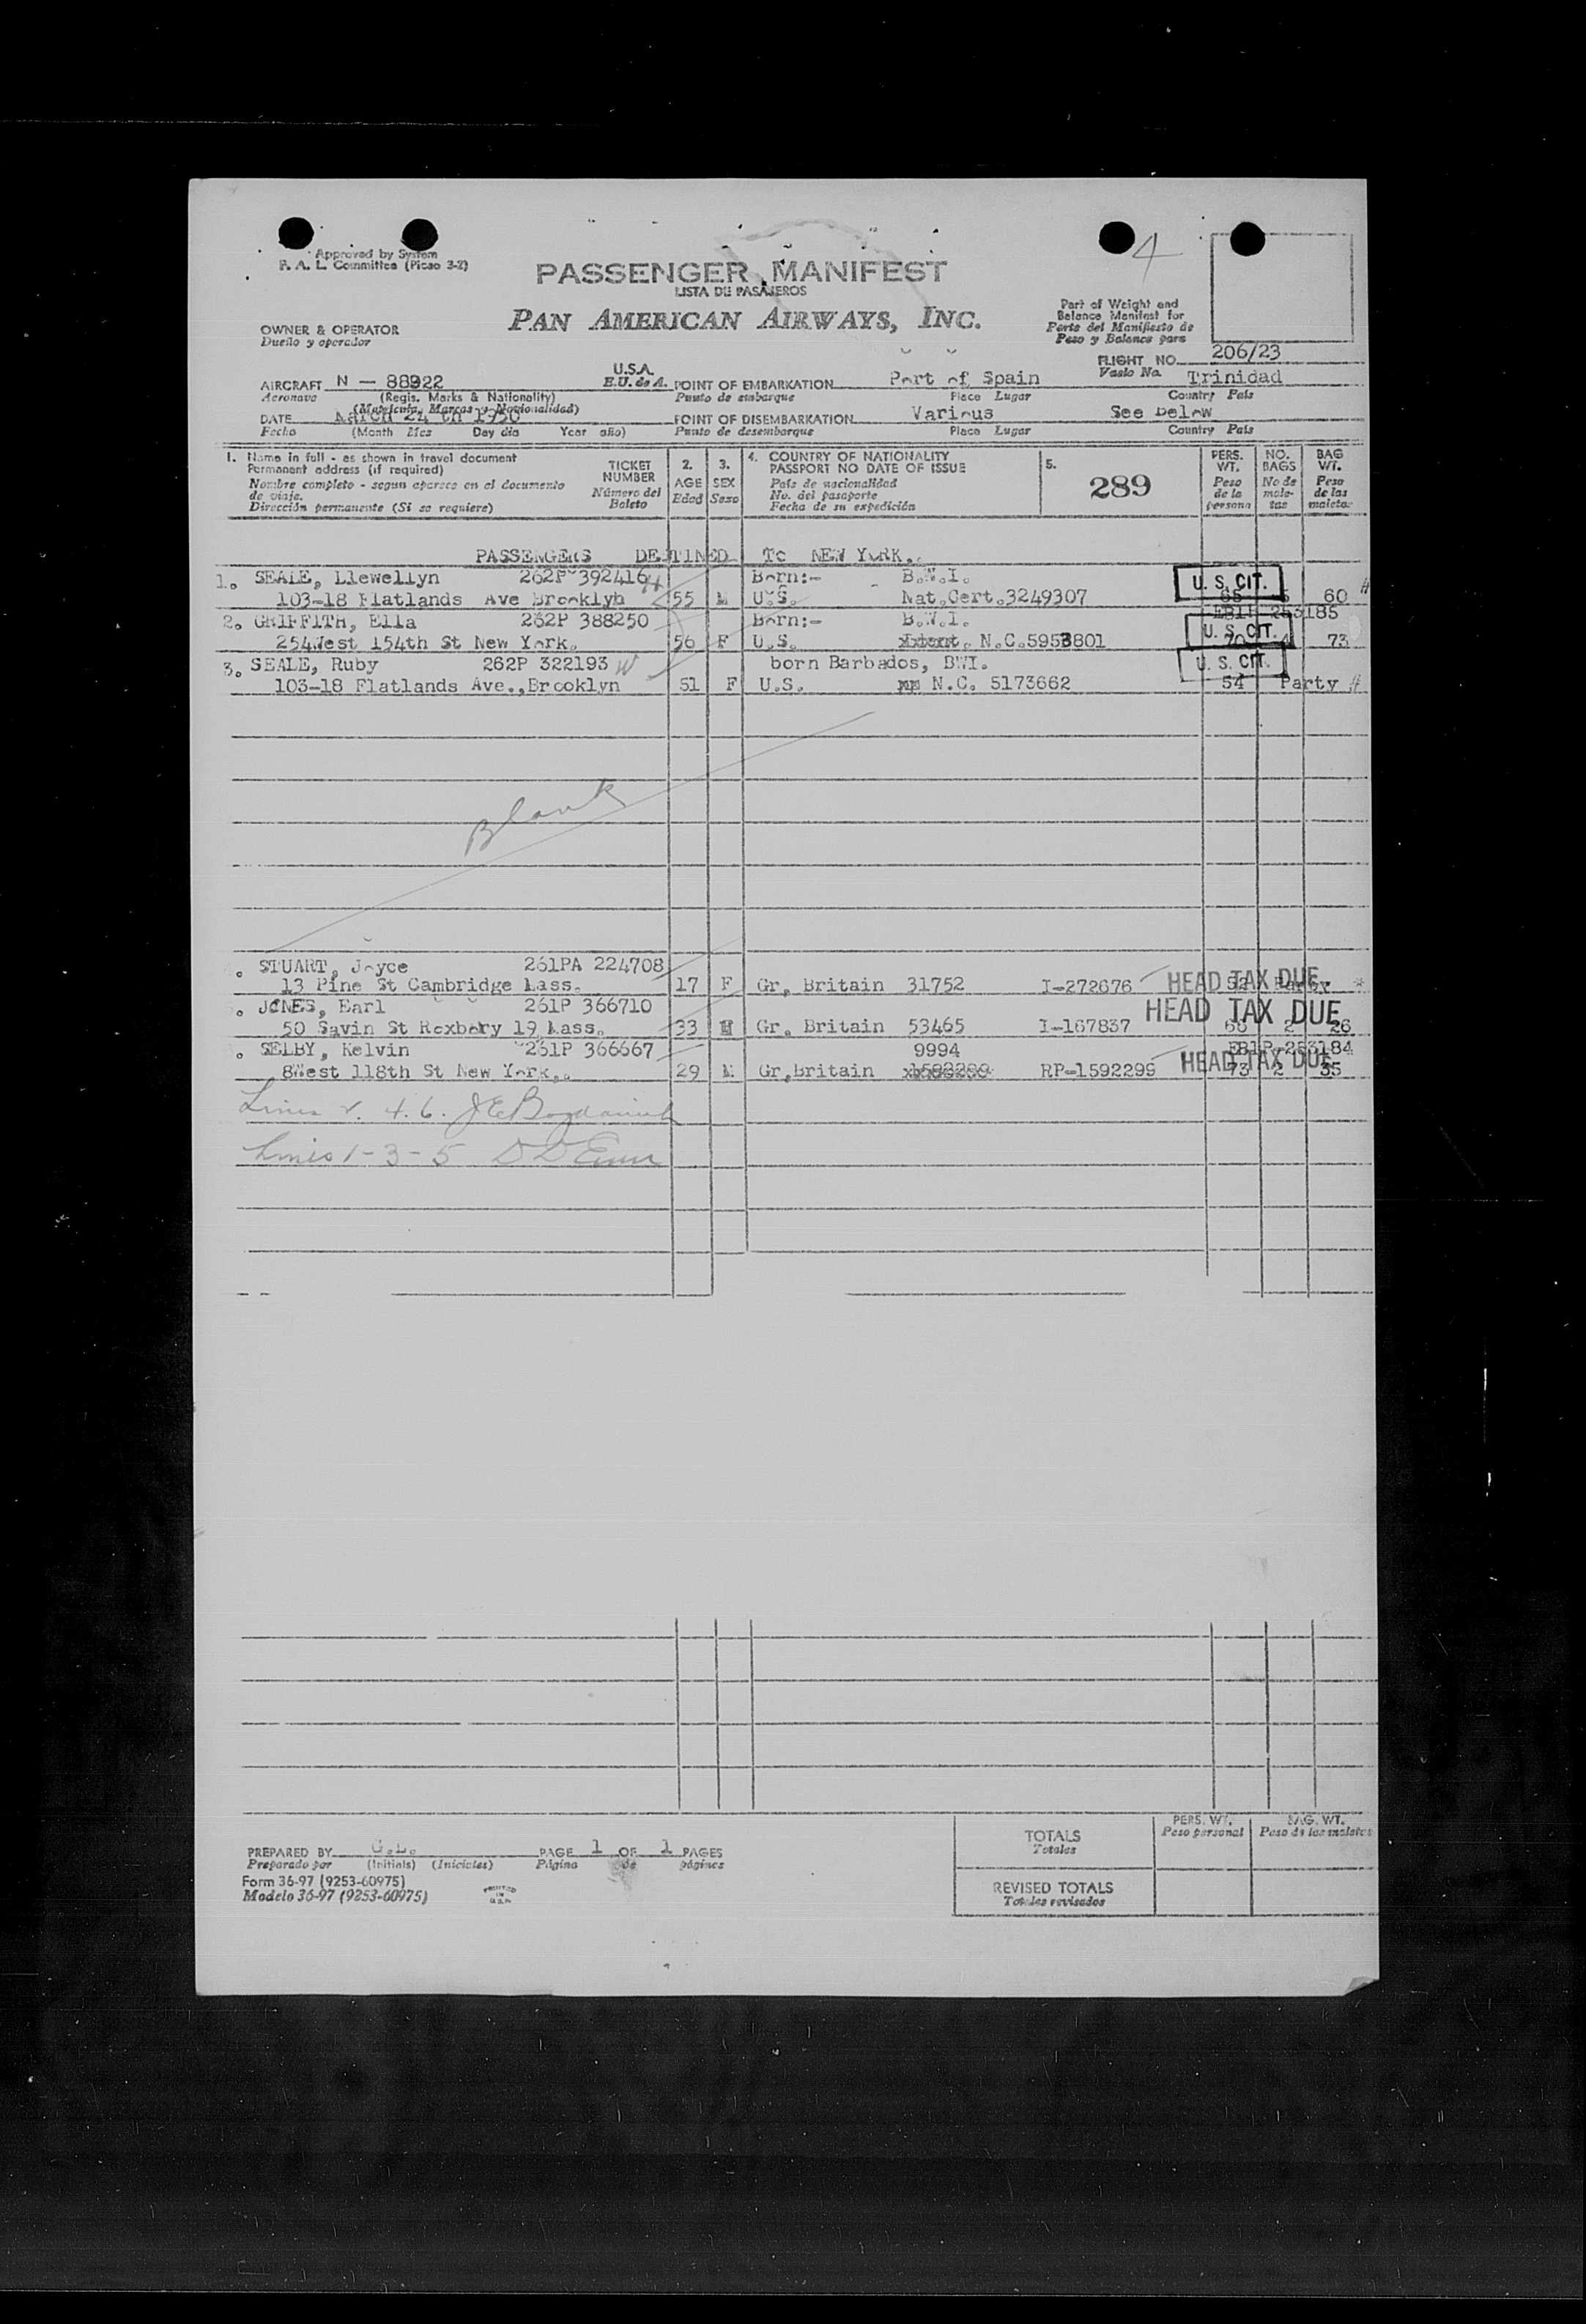 4
Approved by System
F. A. L. Committee (Picao 3-2)
PASSENGER MANIFEST
LISTA DE PASAJEROS
PAN AMERICAN AIRWAYS, INC.
Part of Weight and
Balance Manifest for
Parte del Manifiesto de
Peso y Balance para
OWNER & OPERATOR
Dueño y operador
FLIGHT NO. 206/23
Vuelo No.
U.S.A.
E.U. de A.
AIRCRAFT N — 88922 POINT OF EMBARKATION Port of Spain Trinidad
Aeronave (Regis. Marks & Nationality) Punto de embarque Place Lugar Country País
(Matricula, Marcas y Nacionalidad)
DATE March 24 th 1950 POINT OF DISEMBARKATION Various See below
Fecha (Month Mes Day día Year año) Punto de desembarque Place Lugar Country País
1. Name in full - as shown in travel document
Permanent address (if required)
Nombre completo - segun aparece en el documento
de viaje.
Dirección permanente (Si se requiere)
TICKET
NUMBER
Número del
Boleto
2.
AGE
Edad
3.
SEX
Sexo
4. COUNTRY OF NATIONALITY
PASSPORT NO DATE OF ISSUE
País de nacionalidad
No. del pasaporte
Fecha de su expedición
5.
289
PERS.
WT.
Peso
de la
persona
NO.
BAGS
No de
male-
tas
BAG
WT.
Peso
de las
maletas
PASSENGERS DESTINED To NEW YORK.
1. SEALE, Llewellyn 262P 392416 Born:- B.W.I. U. S. CIT.
103-18 Flatlands Ave Brooklyn 55 M U.S. Nat.Cert.3249307 60
2. GRIFFITH, Ella 262P 388250 Born:- B.W.I. 253185
254West 154th St New York. 56 F U.S. N.C.5953801 U. S. CIT. 70 4 73
3. SEALE, Ruby 262P 322193 born Barbados, BWI. U. S. CIT.
103-18 Flatlands Ave.,Brooklyn 51 F U.S. N.C. 5173662 54 Party
Blank
. STUART, Joyce 261PA 224708
13 Pine St Cambridge Mass. 17 F Gr. Britain 31752 I-272676 HEAD TAX DUE
. JONES, Earl 261P 366710
50 Savin St Roxbery 19 Mass. 33 M Gr. Britain 53465 I-167837 HEAD TAX DUE 68 2 26
. SELBY, Kelvin 261P 366667 9994 253184
8West 118th St New York,. 29 M Gr.Britain RP-1592299 HEAD TAX DUE 73 2 35
Lines 2. 4. 6.
Lines 1-3-5
PREPARED BY G.L. PAGE 1 OF 1 PAGES
Preparado por (Initials) (Iniciales) Página de páginas
Form 36-97 (9253-60975)
Modelo 36-97 (9253-60975)
PRINTED
IN
U.S.A.
PERS. WT. BAG. WT.
Peso personal Peso de las maletas
TOTALS
Totales
REVISED TOTALS
Totales revisados